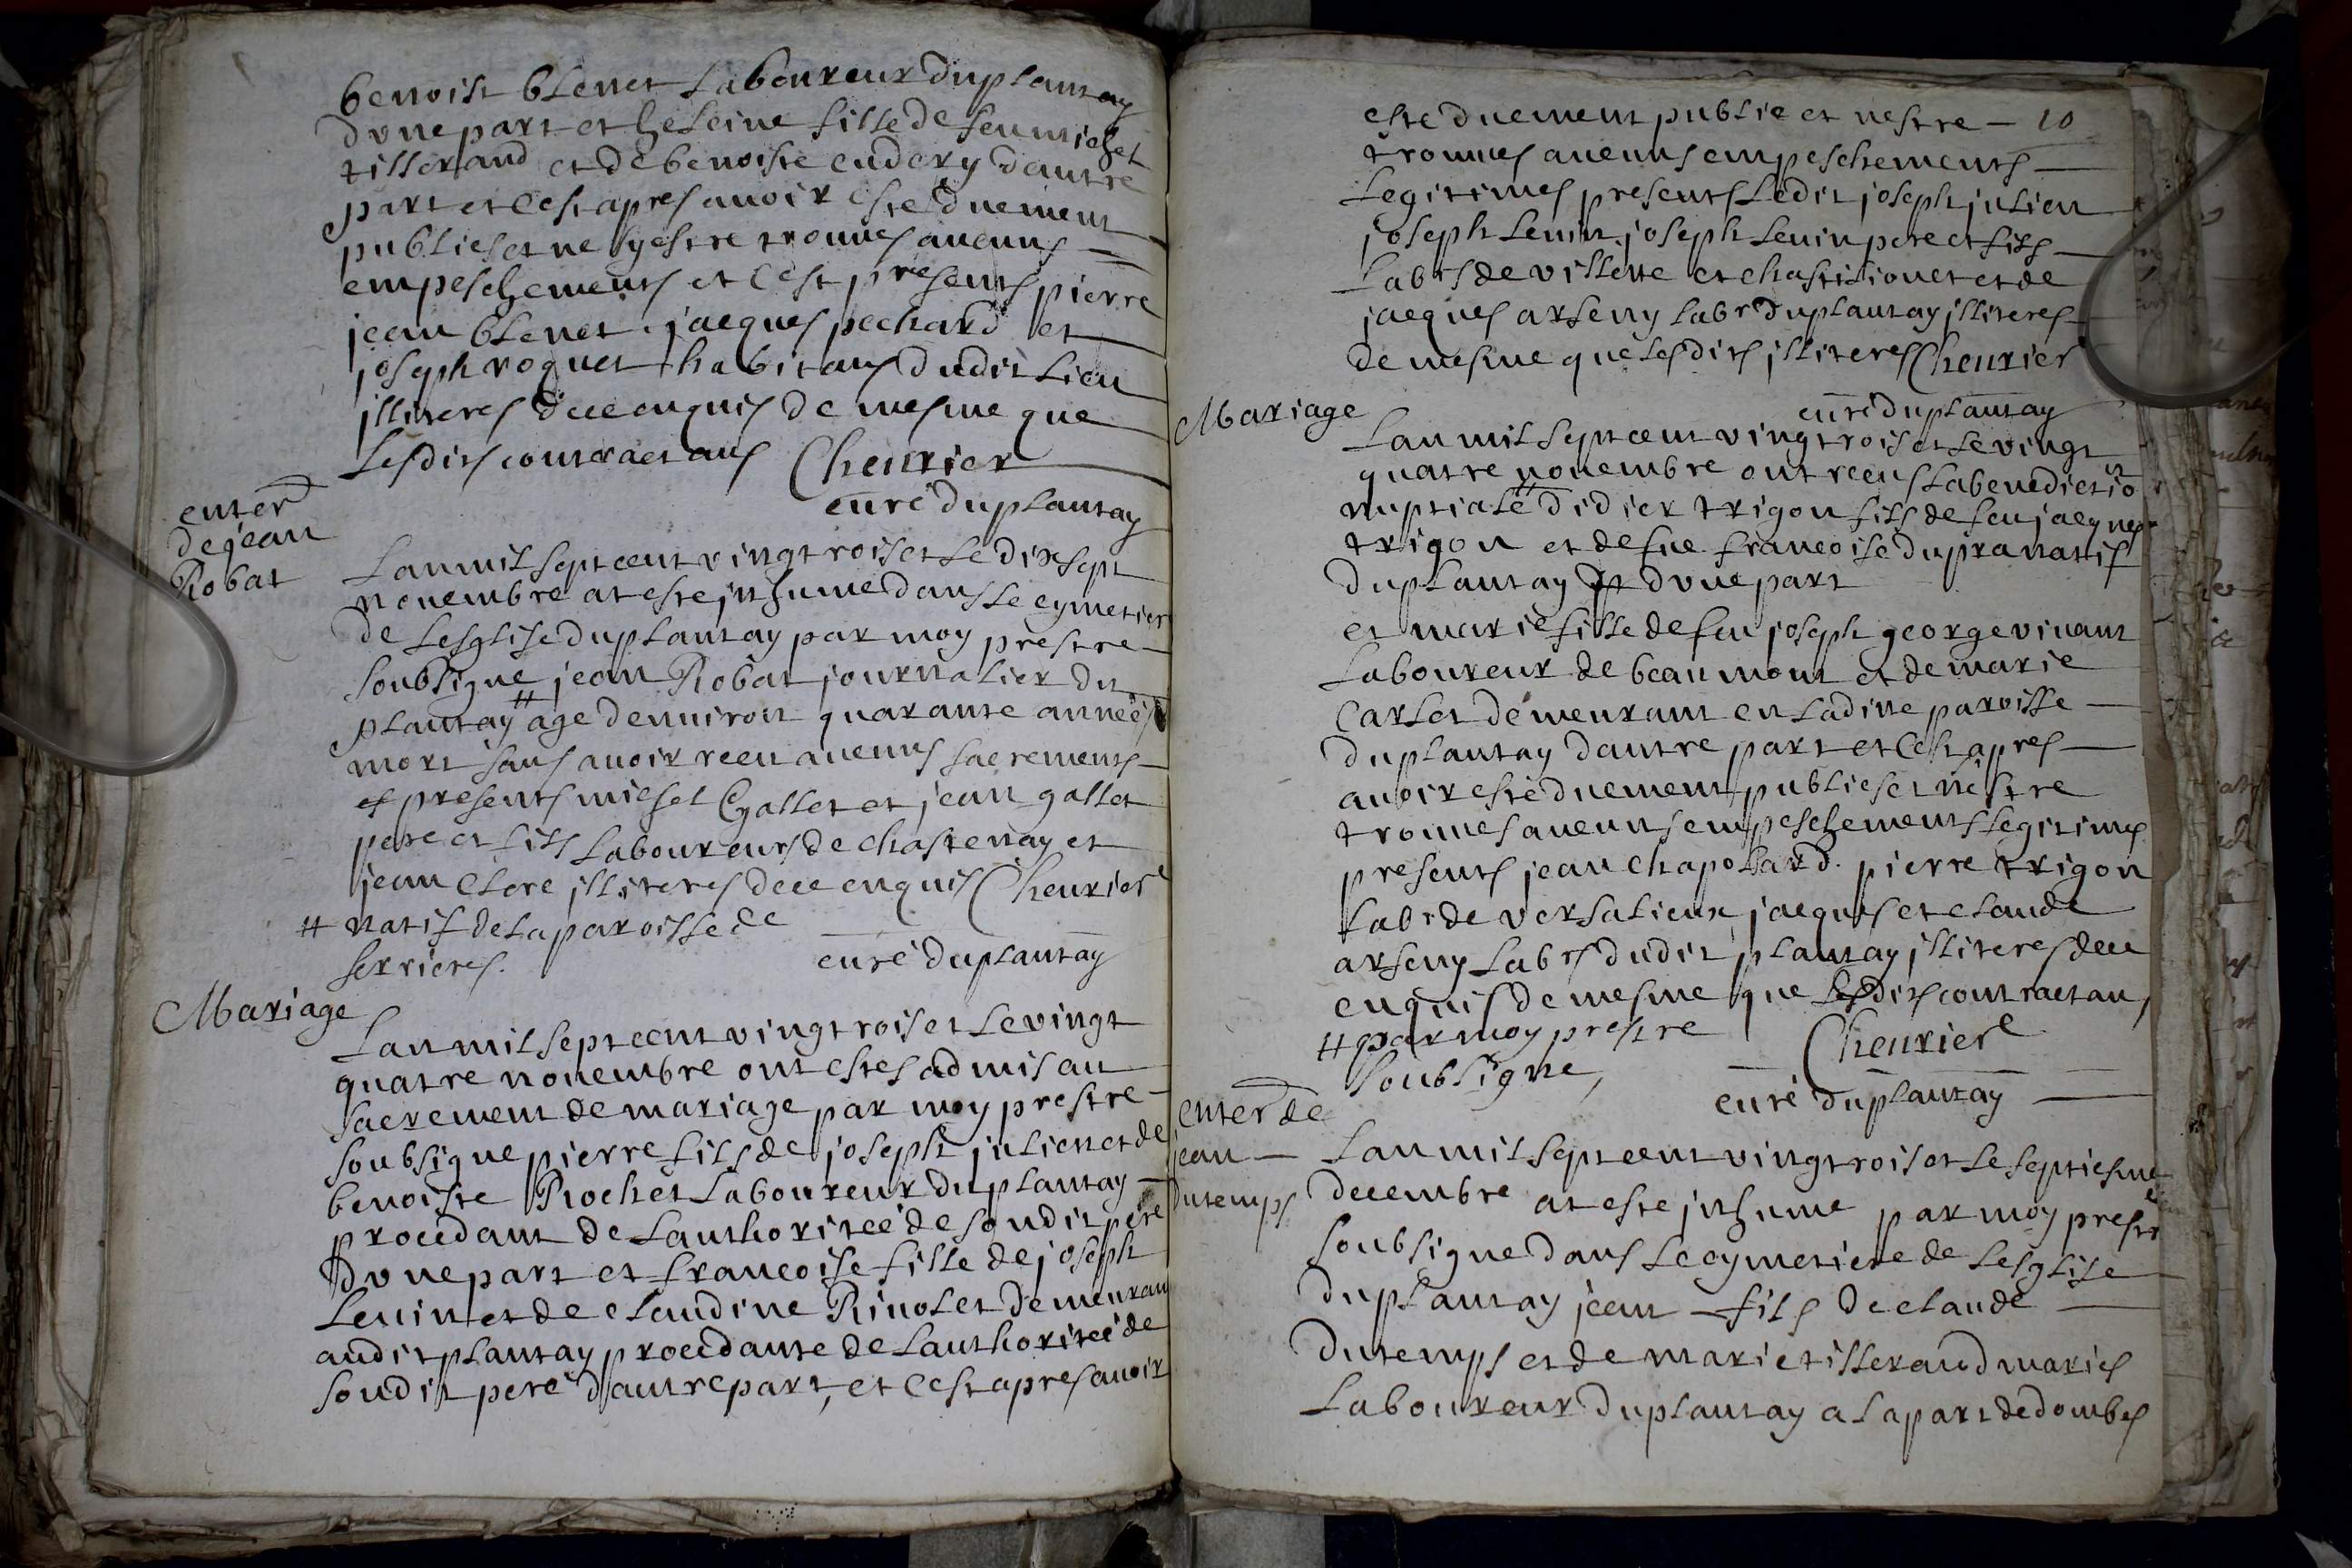 benoist blenet laboureur duplantay
dune part et heleine fille de feu michel
tisserand et de benoiste cudery dautre
part et cest apres avoir esté duement
publies et ne gestre trouves aucuns
empeschements et cest presents pierre
jean blenet jacques pechard et
joseph roquet habitans dudit lieu
illiteres de ce enquis de mesme que
lesdits contractans Cheurier
curé duplantay
enter
de jean
Robat
Lan mil sept cent vingtrois et le dix sept
novembre at este inhume dans le cymetier
de lesglise duplantay par moy prestre
soubsigne jean Robat journalier du
plantay # age denviron quarante années
mort sans avoir receu aucuns sacrements
et presents michel Gallet et jean gallet
pere et fils laboureurs de chastenay et
jean clere illiteres de ce enquis Cheurier
# natif de la paroisse de
serrieres.
curé duplantay
Mariage
Lan mil sept cent vingtrois et le vingt
quatre novembre ont estes admis au
sacrement de mariage par moy prestre
soubsigne pierre fils de joseph julien et de
benoiste Rochet laboureur duplantay
procedant de lauthoritee de sondit pere
dune part et francoise fille de joseph
levin et de claudine Rivolet demeurant
audit plantay procedante de lauthoritee de
sondit pere dautre part, et cest apres avoir
esté duement publie et nestre — 10
trouves aucuns empeschements
legitimes presents ledit joseph julien
joseph levin joseph levin pere et fils
labrs de villette et chastilionet et de
jacques arseny labr duplantay illiteres
de mesme que lesdits illiteres Cheurier
curé duplantay
Mariage
Lan mil sept cent vingtrois et le vingt
quatre novembre ont receus la benedictio
nuptiale # didier trigon fils de feu jacques
trigon et de fue francoise dupra natif
duplantay dune part
et marie fille de feu joseph george vivant
laboureur de beaumont et de marie
carlet demeurant en ladite paroisse
duplantay dautre part et cest apres
avoir esté duement publies et nestre
trouves aucuns empeschements legitimes
presents jean chapolard. pierre trigon
labr de versalieux jacques et claude
arseny labrs dudit plantay illiteres de ce
enquis de mesme que lesdits contractans
# par moy prestre
soubsigne,
Cheurier
curé duplantay
enter de
jean
dutemps
Lan mil sept cent vingtrois et le septiesme
decembre at este inhume par moy prestre
soubsigne dans le cymetiere de lesglise
duplantay jean fils de claude
dutemps et de marie tisserand maries
laboureur duplantay a la part de dombes